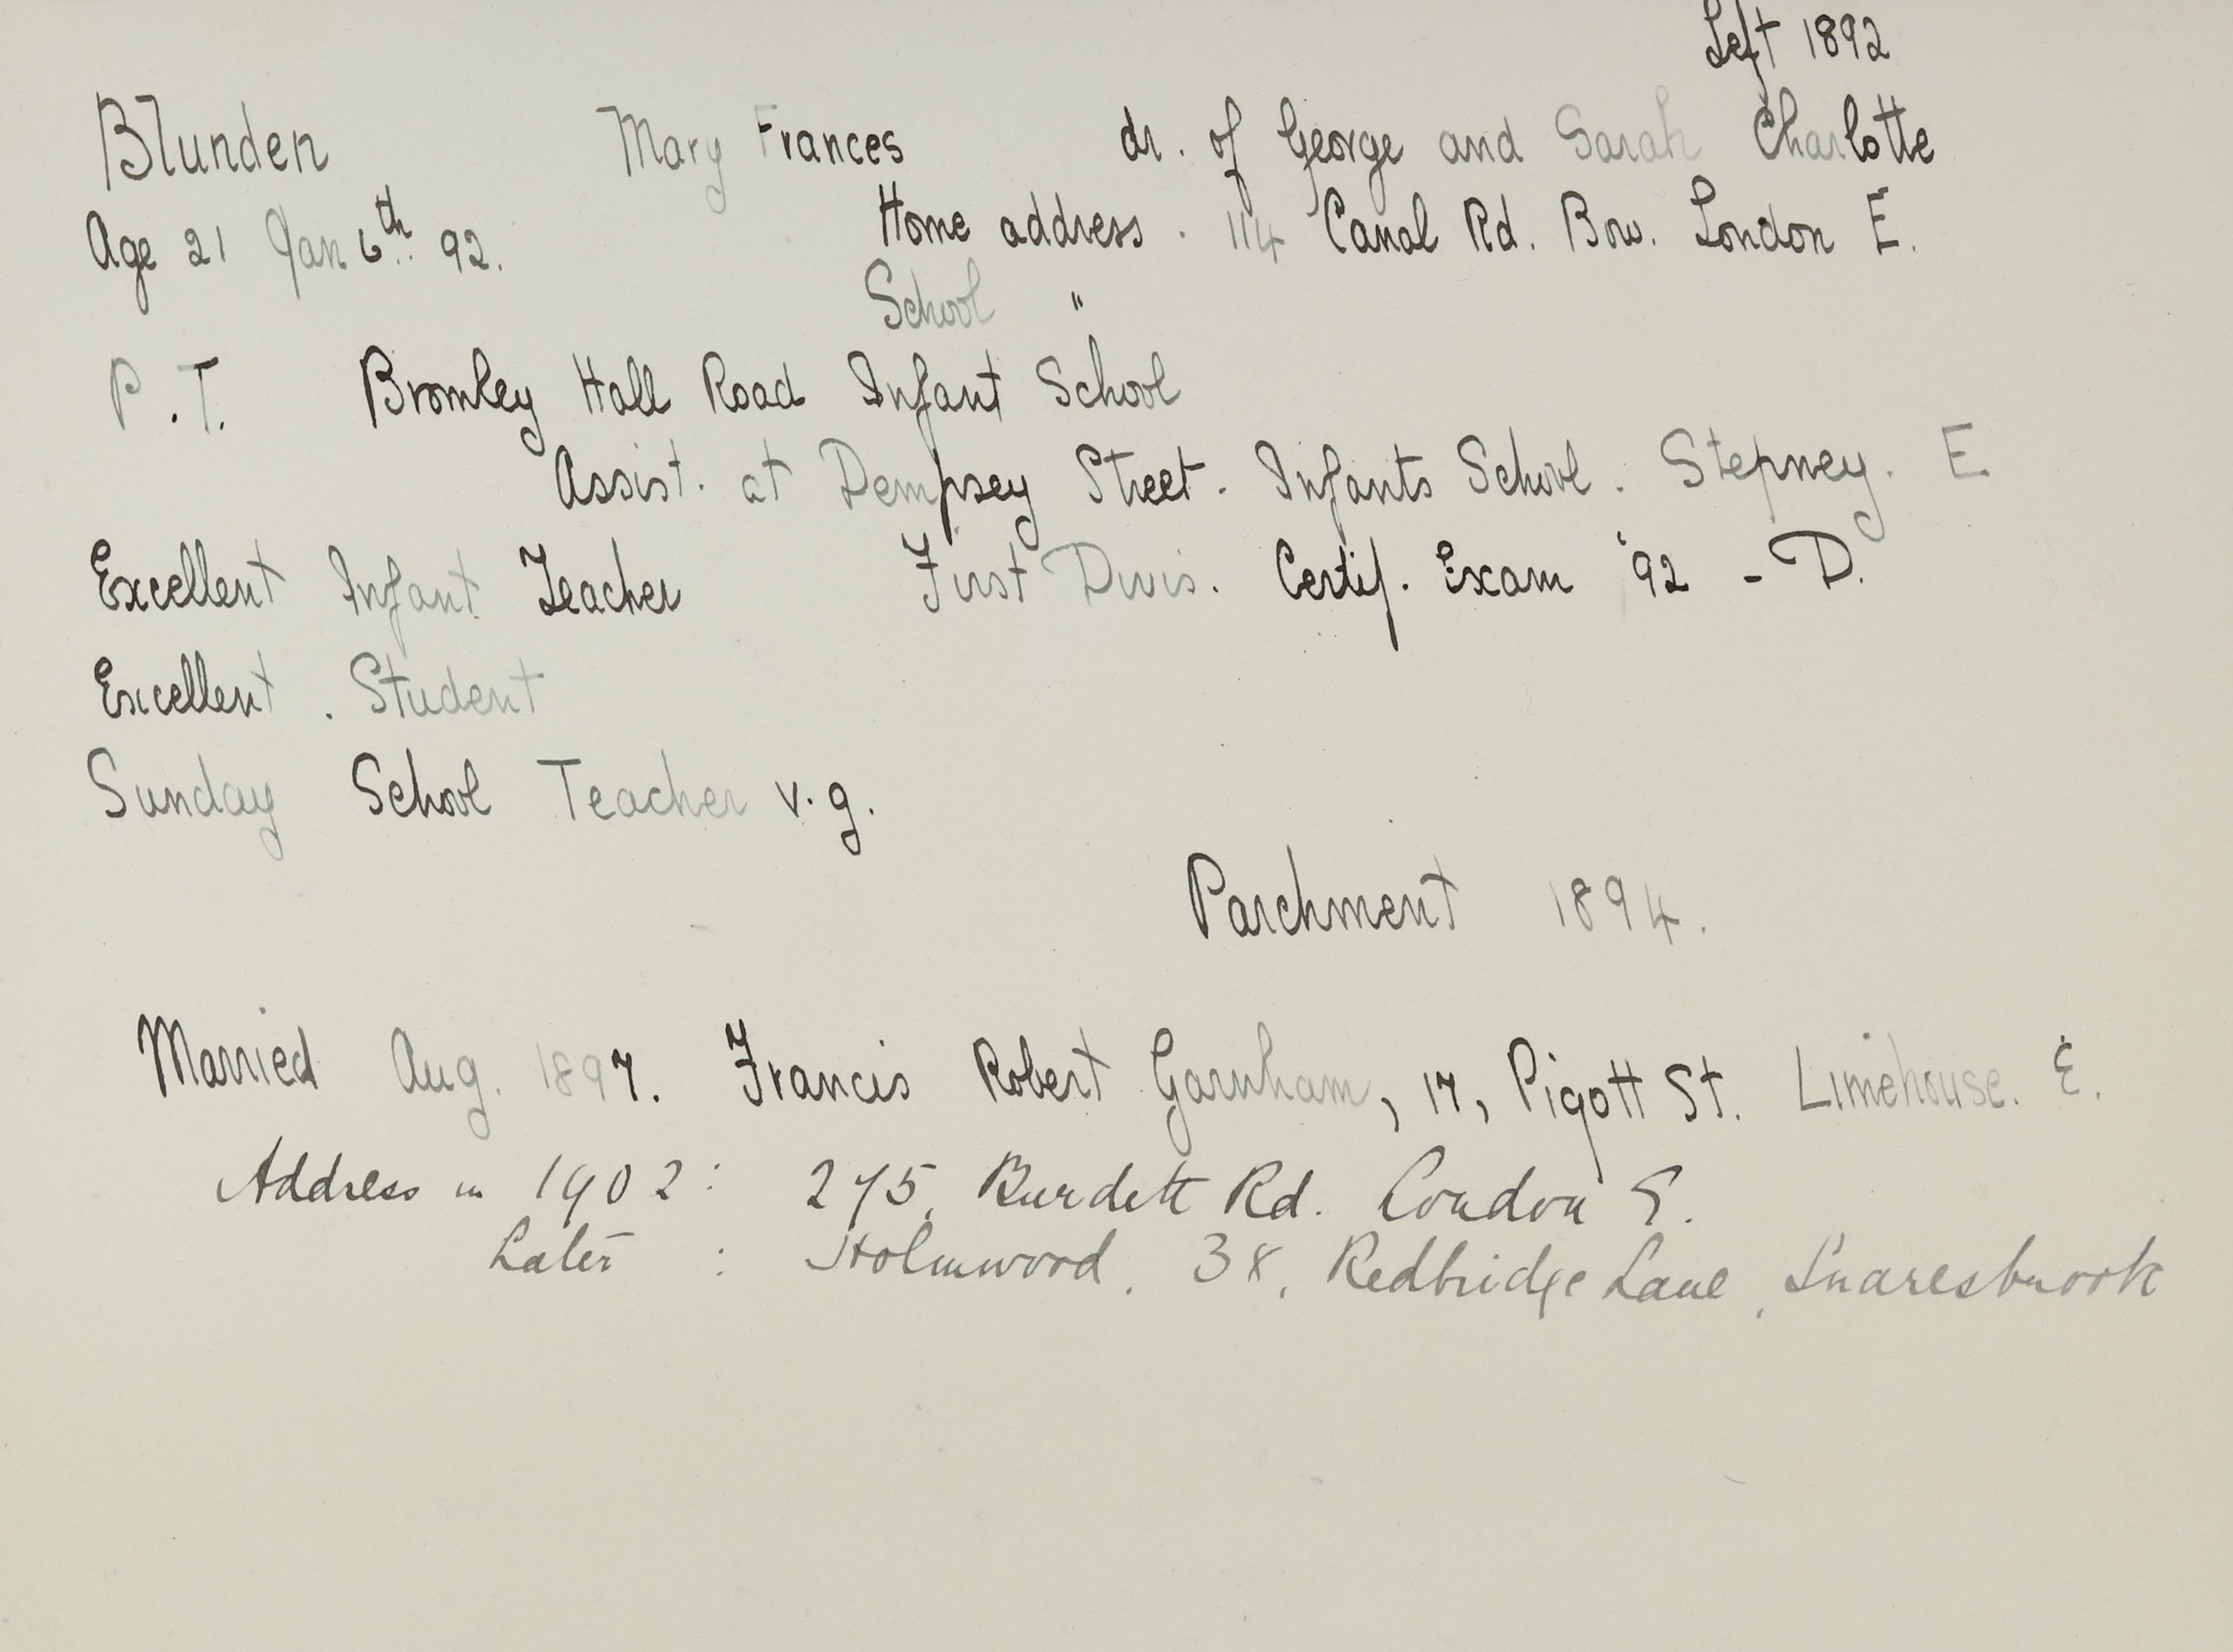 Left 1892
Blunden Mary Frances dr. of George and Sarah Charlotte
Age 21 Jan 6th 92. Home address . 114 Canal Rd. Bow. London E.
School "
P.T. Bromley Hall Road Infant School
Assist. at Dempsey Street. Infants School. Stepney. E.
Excellent Infant Teacher First Divis. Certif. Exam '92 - D.
Excellent . Student
Sunday School Teacher v.g.
Parchment 1894.
Married Aug. 1897. Francis Robert Garnham, 17, Pigott St. Limehouse. E.
Address in 1902: 275, Burdett Rd. London E.
Later : Holmwood, 38, Redbridge Lane, Snaresbrook